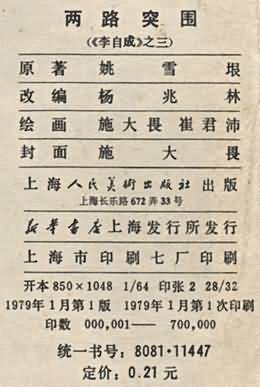 两路突围
(《李自成》之三)
原著 姚雪垠
改编 杨兆林
绘画 施大畏 崔君沛
封面 施大畏
上海人民美術出版社 出版
上海长乐路672弄33号
新华書店上海发行所发行
上海市印刷七厂印刷
开本 850×1048 1/64 印张 2 28/32
1979年1月第1版 1979年1月第1次印刷
印数 000,001—— 700,000
统一书号: 8081·11447
定价: 0.21 元